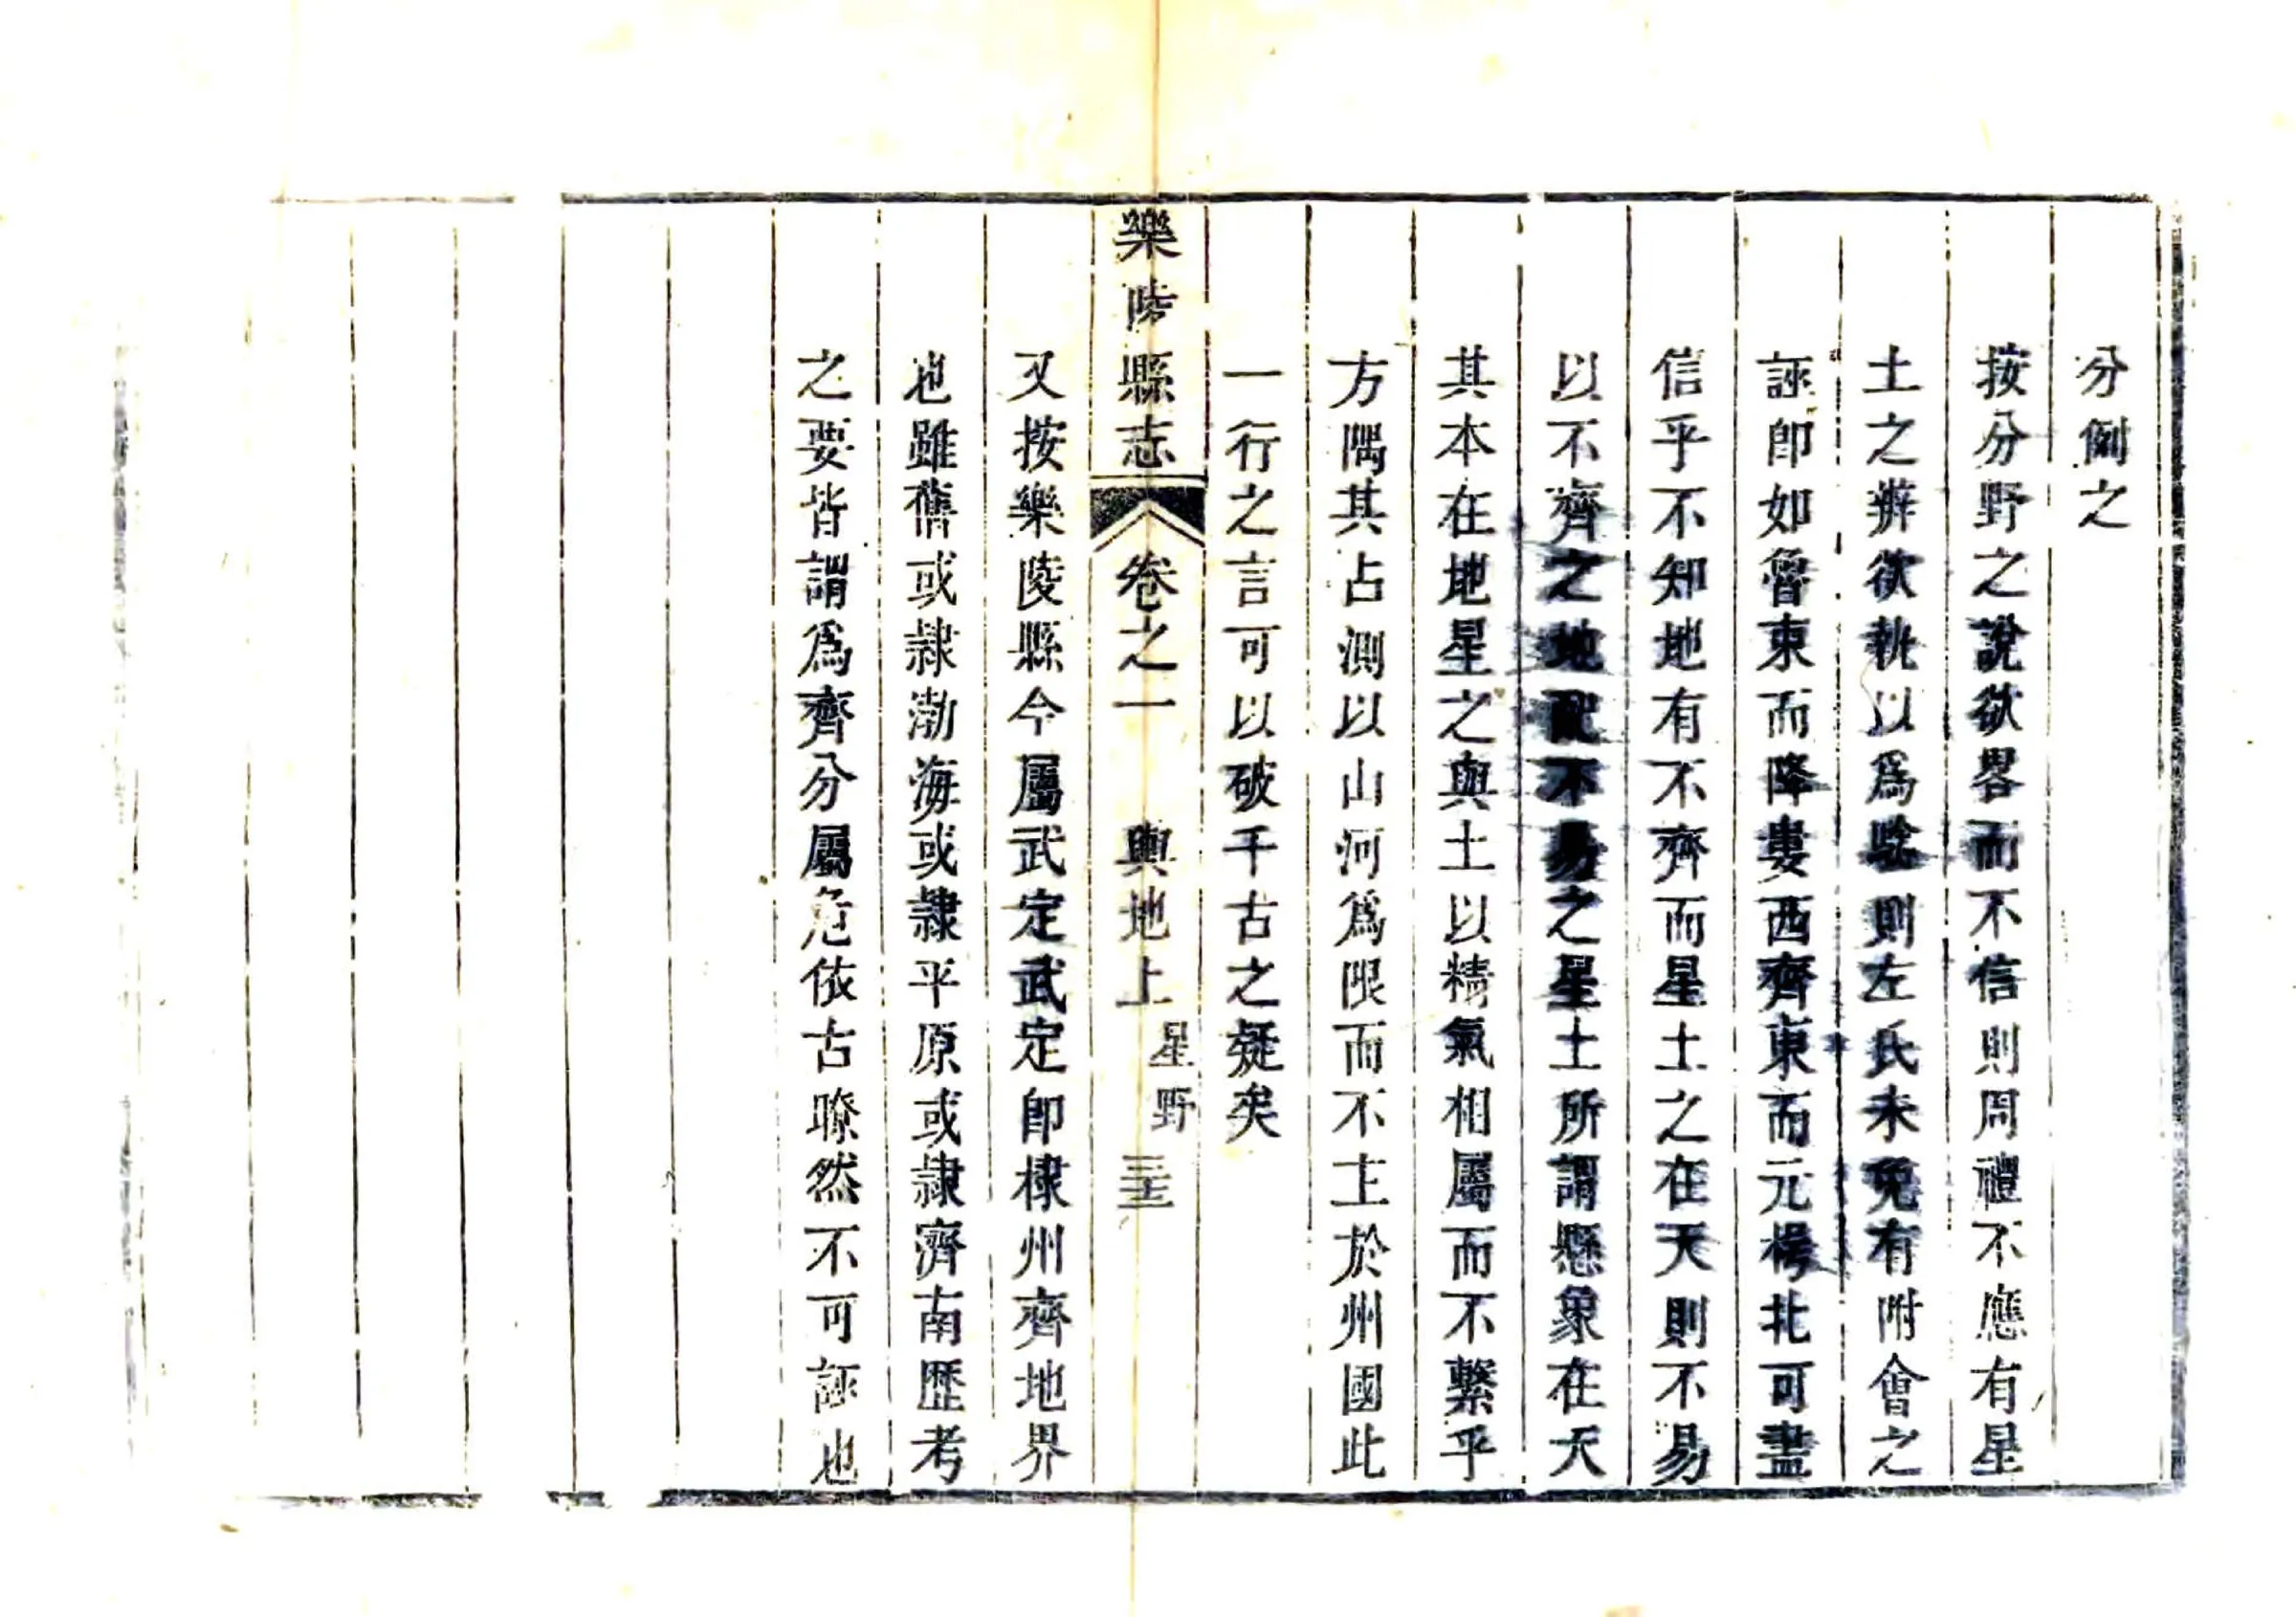 分例之
按分野之說欲畧而不信則周禮不應有星
土之辨欲執以爲驗則左氏未免有附會之
誣卽如魯東而降婁西齊東而元枵北可盡
信乎不知地有不齊而星土之在天則不易
以不齊之地配不易之星土所謂懸象在天
其本在地星之與土以精氣相屬而不繫乎
方隅其占測以山河爲限而不主於州國此
一行之言可以破千古之疑矣
樂陵縣志 卷之一 輿地上 星野
又按樂陵縣今屬武定武定卽棣州齊地界
也雖舊或隸渤海或隸平原或隸濟南歷考
之要皆謂爲齊分屬危依古瞭然不可誣也